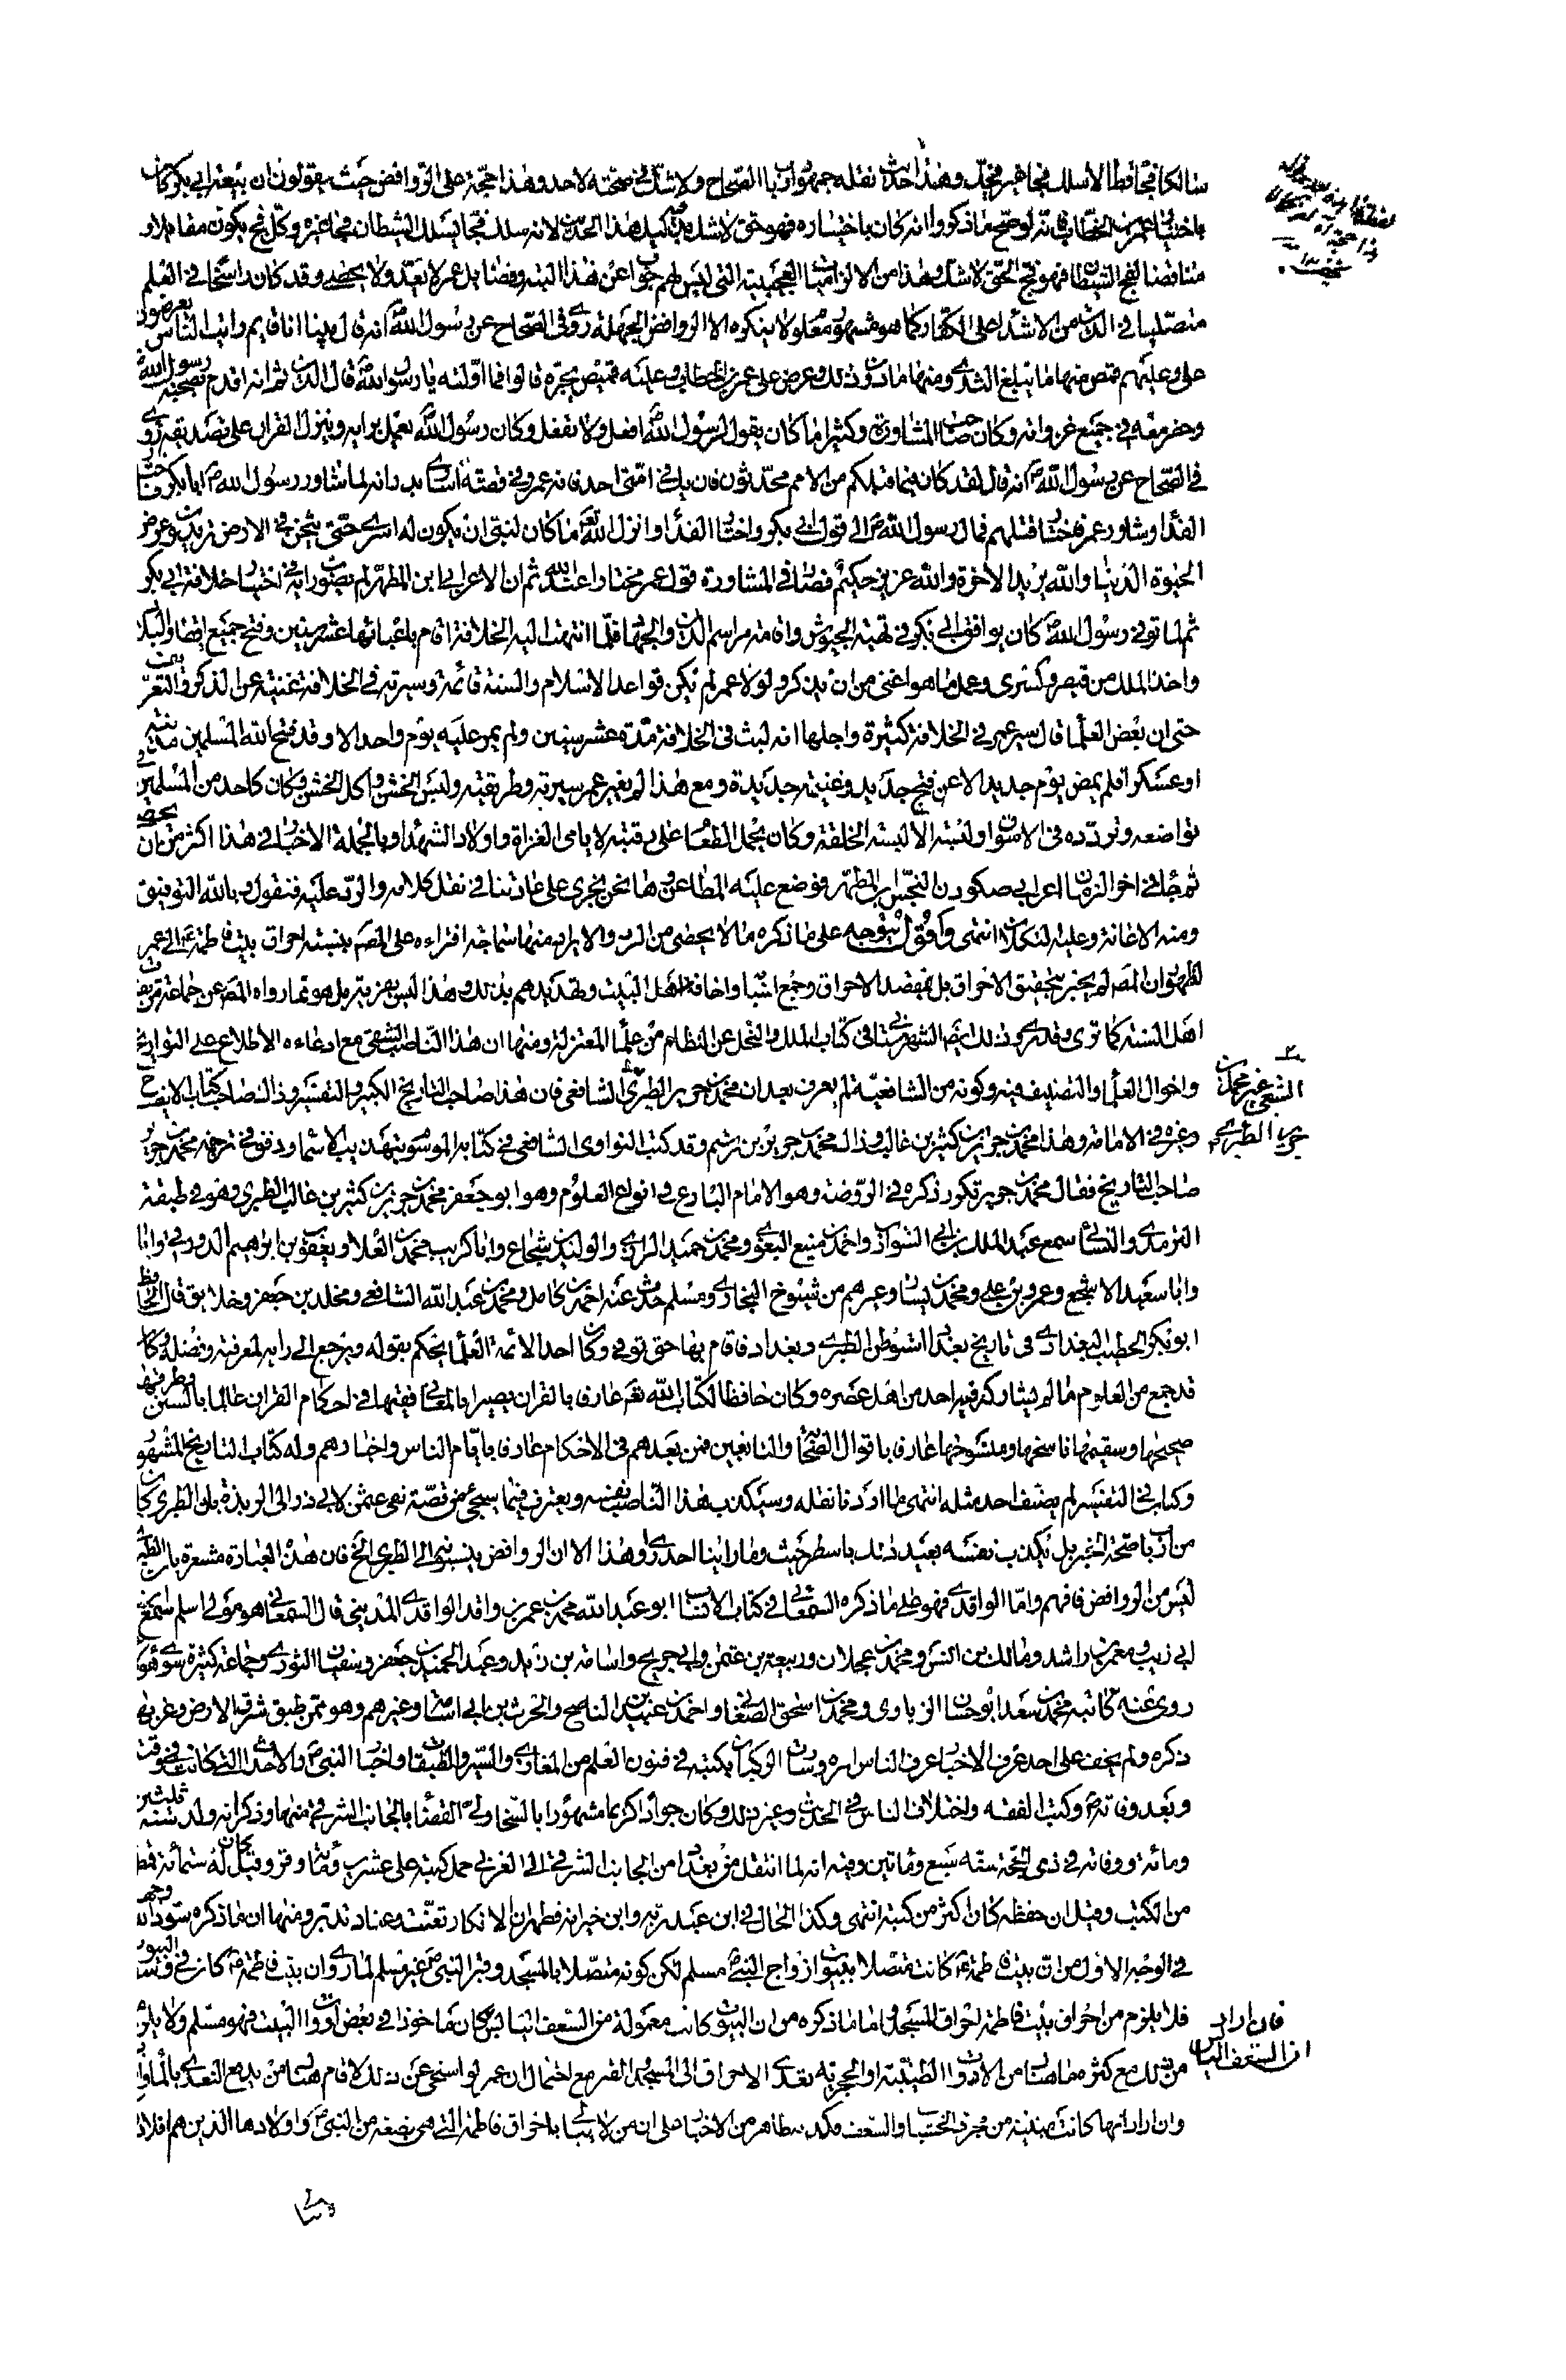 سالكا فجا قط الا سلك فجا غير فجك وهذا حديث نقله جمهور ارباب الصحاح ولا شك في صحته لاحد وهذا حجة على الروافض حيث يقولون ان بيعة ابي بكر كان
باختيار عمر بن الخطاب فانه لو صح ما ذكروا انه كان باختياره فهو حق لا شك فيه بدليل هذا الحديث لانه سلك فجا يسلك الشيطان فجا غيره وكل فج يكون مقابلا و
مناقضا لفج الشيطان فهو فج الحق لا شك وهذا من الالزاميات العجيبة التي ليس لهم جواب عن هذا البتة وفضايل عمر لا تعد ولا تحصى وقد كان راسخا في العلم
متصلبا في الدين من الاشداء على الكفار كما هو مشهور معلوم لا ينكره الا الروافض الجهلة روى في الصحاح عن رسول الله ص انه قال بينا انا نايم رايت الناس يعرضون
علي وعليهم قمص منها ما يبلغ الثدي ومنها ما دون ذلك وعرض علي عمر بن الخطاب وعليه قميص يجره قالوا فما اولته يا رسول الله ص قال الدين ثم انه اقدم بصحبة رسول الله ص
وحضر معه في جميع غزواته وكان صاحب المشاورة وكثيرا ما كان يقول لرسول الله ص افعل ولا تفعل وكان رسول الله ص يعمل برايه وينزل القرآن على تصديقه روى
في الصحاح عن رسول الله ص انه قال لقد كان فيما قبلكم من الامم محدثون فان يك في امتي احد فانه عمر وفي قصة اسارى بدر انه لما شاور رسول الله ص ابا بكر فاختار
الفداء وشاور عمر فاختار قتلهم فمال رسول الله ص الى قول ابي بكر واختار الفداء وانزل الله تعالى ما كان لنبي ان يكون له اسرى حتى يثخن في الارض تريدون عرض
الحيوة الدنيا والله يريد الاخرة والله عزيز حكيم فصار في المشاورة قول عمر مختارا عند الله ثم ان الاعرابي ابن المطهر لم يصوب رايه في اختيار خلافة ابي بكر
ثم لما توفي رسول الله ص كان يوافق ابي بكر في تهية الجيوش واقامة مراسم الدين والجهاد فلما انتهت اليه الخلافة اقام باعبائها عشر سنين وفتح جميع اقطار البلاد
واخذ الملك من قيصر وكسرى وعمل ما هو اغنى من ان يذكر ولولا عمر لم يكن قواعد الاسلام والسنة قائمة وسيرته في الخلافة غنية عن الذكر والتعريف
حتى ان بعض العلماء قال سير عمر في الخلافة كثيرة واجلها انه لبث في الخلافة مدة عشر سنين ولم يمر عليه يوم واحد الا وقد فتح الله للمسلمين مدينة
او عسكرا فلم يمض يوم جديد الا عن فتح جديد وغنيمة جديدة ومع هذا لم يغير عمر سيرته وطريقته ولبس الخشن واكل الخشن وكان كاحد من المسلمين في
تواضعه وتردده في الاسواق ولبسه الالبسة الخلقة وكان يحمل الطعام على رقبته لايامى الغزاة واولاد الشهداء وبالجملة الاخبار في هذا اكثر من ان يحصى
ثم جاء في اخر الزمان اعرابي ... النجس ابن المطهر ووضع عليه المطاعن وها نحن نجري على عادتنا في نقل كلامه والرد عليه فنقول وبالله التوفيق
ومنه الاغاثة وعليه التكلان انتهى واقول يتوجه على ما ذكره ما لا يحصى من الرد والايراد منها سماجة افتراءه على المصنف بنسبة احراق بيت فاطمة ع الى عمر
لظهور ان المص لم يخبر بتحقيق الاحراق بل بقصد الاحراق وجمع اسبابه واخافة اهل البيت وتهديدهم بذلك وهذا ليس بفرية بل هو مما رواه المص عن جماعة من
اهل السنة كما ترى وقد روى ذلك ايضا الشهرستاني في كتاب الملل والنحل عن النظام من علماء المعتزلة ومنها ان هذا الناصب الشقي مع ادعاءه الاطلاع على التواريخ
واحوال العلماء والتصنيف فيه وكونه من الشافعية لم يعرف بعد ان محمد بن جرير الطبري الشافعي فان هذا صاحب التاريخ الكبير والتفسير وذاك صاحب كتاب الايضاح
الشيعي غير محمد بن
جرير الطبري
وغيره في الامامة وهذا محمد بن جرير بن كثير بن غالب وذاك محمد بن جرير بن رستم وقد كتب النواوي الشافعي في كتابه الموسوم بتهذيب الاسماء ودقق في ترجمة محمد بن جرير
صاحب التاريخ فقال محمد بن جرير تكرر ذكره في الروضة وهو الامام البارع في انواع العلوم وهو ابو جعفر محمد بن جرير بن كثير بن غالب الطبري وهو في طبقة
الترمذي والنسائي سمع عبد الملك بن ابي الشوارب واحمد بن منيع البغوي ومحمد بن حميد الرازي والوليد بن شجاع وابا كريب محمد بن العلاء ويعقوب بن ابراهيم الدورقي
وابا سعيد الاشج وعمرو بن علي ومحمد بن بشار وغيرهم من شيوخ البخاري ومسلم حدث عنه احمد بن كامل ومحمد بن عبد الله الشافعي ومخلد بن جعفر وخلايق قال الحافظ
ابو بكر الخطيب البغدادي في تاريخ بغداد استوطن الطبري ببغداد فاقام بها حتى توفي وكان احد الائمة العلماء يحكم بقوله ويرجع الى رايه لمعرفته وفضله وكان
قد جمع من العلوم ما لم يشاركه فيه احد من اهل عصره وكان حافظا لكتاب الله تعم عارفا بالقرآن بصيرا بالمعاني فقيها في احكام القرآن عالما بالسنن وطرقها
صحيحها وسقيمها ناسخها ومنسوخها عارفا باقوال الصحابة والتابعين فمن بعدهم في الاحكام عارفا بايام الناس واخبارهم وله كتاب التاريخ المشهور
وكتاب في التفسير لم يصنف احد مثله انتهى ما اردنا نقله وسيكذب هذا الناصب نفسه ويعترف فيما سيجيء من قصة نفي عثمن لابي ذر الى الربذة بان الطبري كان
من ارباب صحة الخبر بل يكذب نفسه بعيد ذلك باسطر حيث وما راينا احدا روى هذا الا ان الروافض ينسبونه الى الطبري الخ فان هذه العبارة مشعرة بان الطبري
ليس من الروافض فافهم واما الواقدي فهو على ما ذكره السمعاني في كتاب الانساب ابو عبد الله محمد بن عمر بن واقد الواقدي المديني قال السمعاني هو مولى اسلم سمع
ابي ذيب ومعمر بن راشد ومالك بن انس ومحمد بن عجلان وربيعة بن عثمن وابي جريح واسامة بن زيد وعبد الحميد بن جعفر وسفيان الثوري وجماعة كثيرة سوى هؤلاء
روى عنه كاتبه محمد بن سعد ابو حسان الزيادي ومحمد بن اسحق الصنعاني واحمد بن عبيد بن الناصح والحرث بن ابي اسامة وغيرهم وهو ممن طبق شرق الارض وغربها
ذكره ولم يخف على احد عرف الاخبار عرف الناس امره وسارت الركبان بكتبه في فنون العلم من المغازي والسير والطبقات واخبار النبي ص والاحداث التي كانت في وقته
وبعد وفاته ص وكتب الفقه واختلاف الناس في الحديث وغير ذلك وكان جوادا كريما مشهورا بالسخاء ولي القضاء بالجانب الشرقي منها وذكر انه ولد سنة ثلثين
ومائة ووفاته في ذي الحجة سنة سبع ومأتين وفيه انه لما انتقل من بغداد من الجانب الشرقي الى الغربي حمل كتبه على عشرين ومائة وقر وقيل كان له ستمائة قمطر
من الكتب وقيل ان حفظه كان اكثر من كتبه انتهى وكذا الحال في ابن عبد ربه وابن خيرانه فظهر ان الانكار تعنت وعناد تدبر ومنها ان ما ذكره سود الله وجهه
في الوجه الاول من ان بيت فاطمة ع كانت متصلا ببيوت ازواج النبي ص مسلم لكن كونه متصلا بالمسجد وقبر النبي ص غير مسلم لما روى ان بيت فاطمة ع كان في وسط البيوت
فلا يلزم من احراق بيت فاطمة احراق المسجد واما ما ذكره من ان البيوت كانت معمولة من السعف اليابس كان ماخوذا في بعض ادوات البيت فهو مسلم ولا يلزم
فان اراد
ان السعف اليابس
من ذلك مع كثرة ما هناك من الادوات الطينية او الحجرية تعدي الاحراق الى المسجد والقبر مع احتمال ان عمر لو استحيى عن ذلك لاقام هناك من يدفع التعدي بالماء
وان اراد انها كانت مبنية من مجرد الخشب والسعف فكذب ظاهر من الاخبار على ان من لا يبالي باحراق فاطمة التي هي بضعة من النبي ص واولادها الذين هم افلاذ